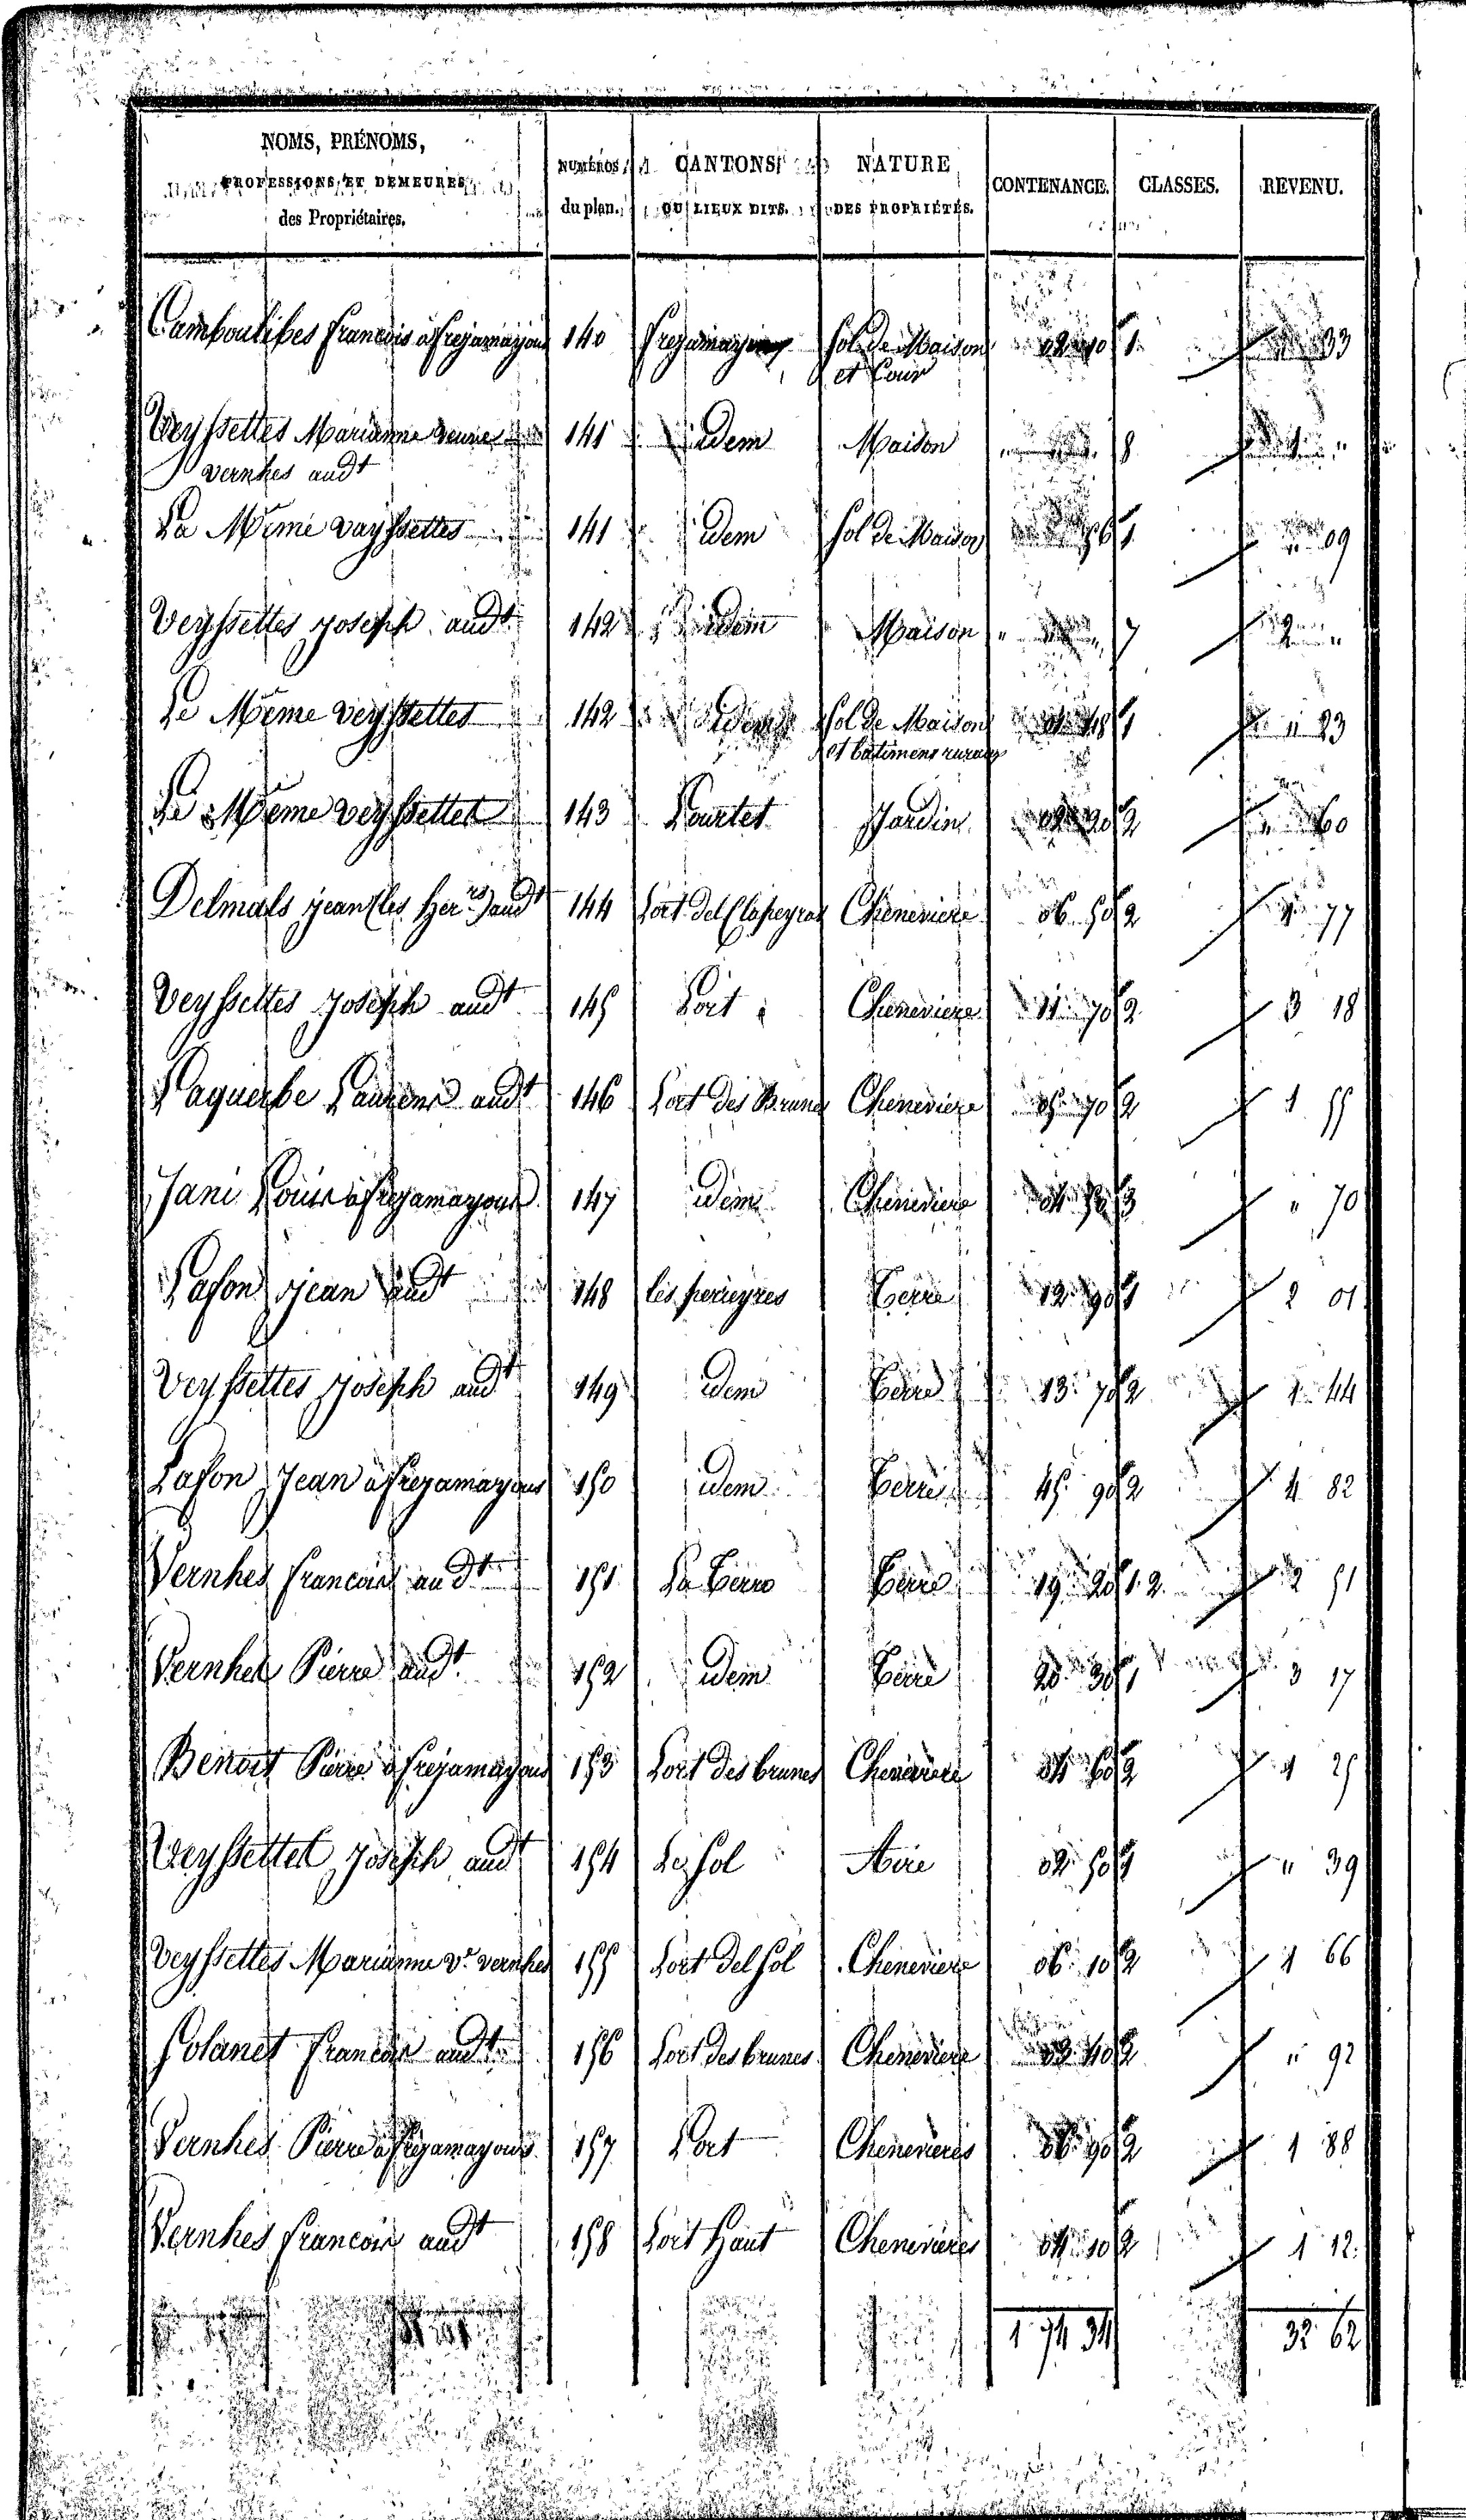 NOMS, PRÉNOMS, PROFESSIONS ET DEMEURES des Propriétaires. NUMÉROS du plan. CANTONS OU LIEUX DITS. NATURE DES PROPRIÉTÉS. CONTENANCE. CLASSES. REVENU.
Camboulibes francois à frejamayous 140 frejamayous sol de Maison 02 10 1 33
et Cour
Veyssettes Marianne veuve 141 idem Maison 8
vernhes audt
La Même vayssettes 141 idem sol de Maison 56 1 " 09
Veyssettes joseph audt 142 idem Maison " 7 "
Le Même veyssettes 142 idem sol de Maison 01 48 1 " 23
et batimens ruraux
Le Même veyssettes 143 Lourtet Jardin 02 20 2 " 60
Delmals jean (les herrs) audt 144 Lort del Clapeyras Cheneviere 06 50 2 1 77
Veyssettes joseph audt 145 Lort Cheneviere 11 70 2 3 18
Laquerbe Laurens audt 146 Lort des Brunes Cheneviere 05 70 2 1 55
Jani Louis à frejamayous 147 idem Cheneviere 04 50 3 " 70
Lafon jean audt 148 les peireyres Terre 12 90 1 2 01
Veyssettes joseph audt 149 idem Terre 13 70 2 1 44
Lafon Jean à frejamayous 150 idem Terre 45 90 2 4 82
Vernhes francois audt 151 La Terre Terre 19 20 1.2. 2 51
Vernhes Pierre audt 152 idem Terre 20 30 1 3 17
Benoit Pierre à frejamayous 153 Lort des brunes Cheneviere 04 60 2 1 25
Veyssettes joseph audt 154 Le sol Aire 02 50 1 " 39
Veyssettes Marianne ve vernhes 155 Lort del sol Cheneviere 06 10 2 1 66
Solanet francois audt 156 Lort des brunes Cheneviere 03 40 2 " 92
Vernhes Pierre à frejamayous 157 Lort Chenevieres 06 90 2 1 88
Vernhes francois audt 158 Lort haut Chenevieres 04 10 2 1 12
1 74 34 32 62